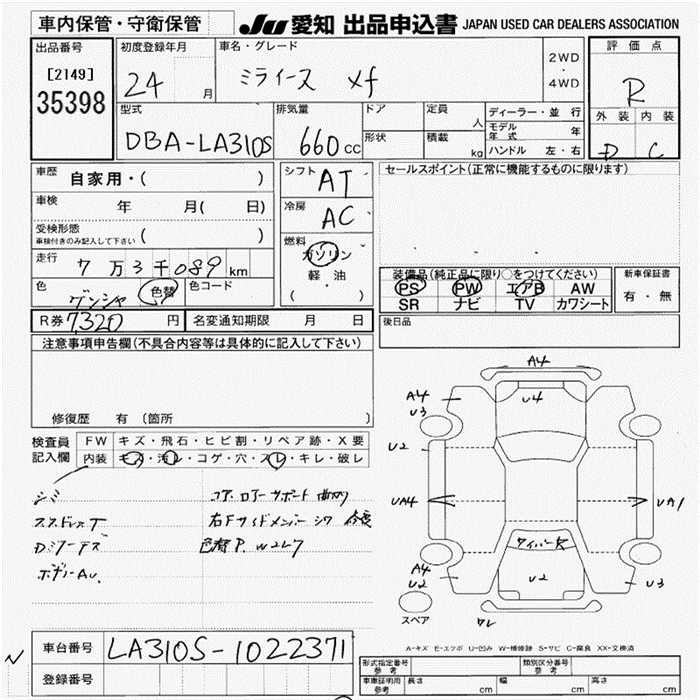 車内保管・守衛保管
JU 愛知 出品申込書 JAPAN USED CAR DEALERS ASSOCIATION
出品番号
[2149]
35398
初度登録年月
24 月
車名・グレード
ミライース Xf
2WD
・
4WD
評価点
R
外装 内装
D C
型式
DBA-LA310S
排気量
660 cc
ドア
形状
定員 人
積載 kg
ディーラー・並行
モデル年式 年
ハンドル 左・右
車歴
自家用・( )
車検 年 月( 日)
受検形態
車検付きのみ記入して下さい ( )
走行
7万3千089 km
色
ゲンシャ 色替
色コード
シフト AT
冷房 AC
燃料
ガソリン
軽油
( ・ )
セールスポイント(正常に機能するものに限ります)
装備品(純正品に限り○をつけてください)
PS PW エアB AW
SR ナビ TV カワシート
新車保証書
有・無
R券 7320 円
名変通知期限 月 日
後日品
注意事項申告欄(不具合内容等は具体的に記入して下さい)
修復歴 有 (箇所 )
検査員
記入欄
FW キズ・飛石・ヒビ割・リペア跡・X要
内装 キズ・汚レ・コゲ・穴・スレ・キレ・破レ
シミ
スタッドレスT
コア、ロアーサポート曲り
右Fサイドメンバーシワ 修復
色替P.W2レ7
A4
A4
U3
U4
A4
U3
U2
U2
UA4
UA1
タイバー欠
A4
U2
U2
U3
ワレ
スペア
A-キズ E-エクボ U-凹み W-補修跡 S-サビ C-腐食 XX-交換済
N
車台番号 LA310S-1022371
登録番号
形式指定番号
参考
類別区分番号
参考
車庫証明用
参考
長さ cm
幅 cm
高さ cm